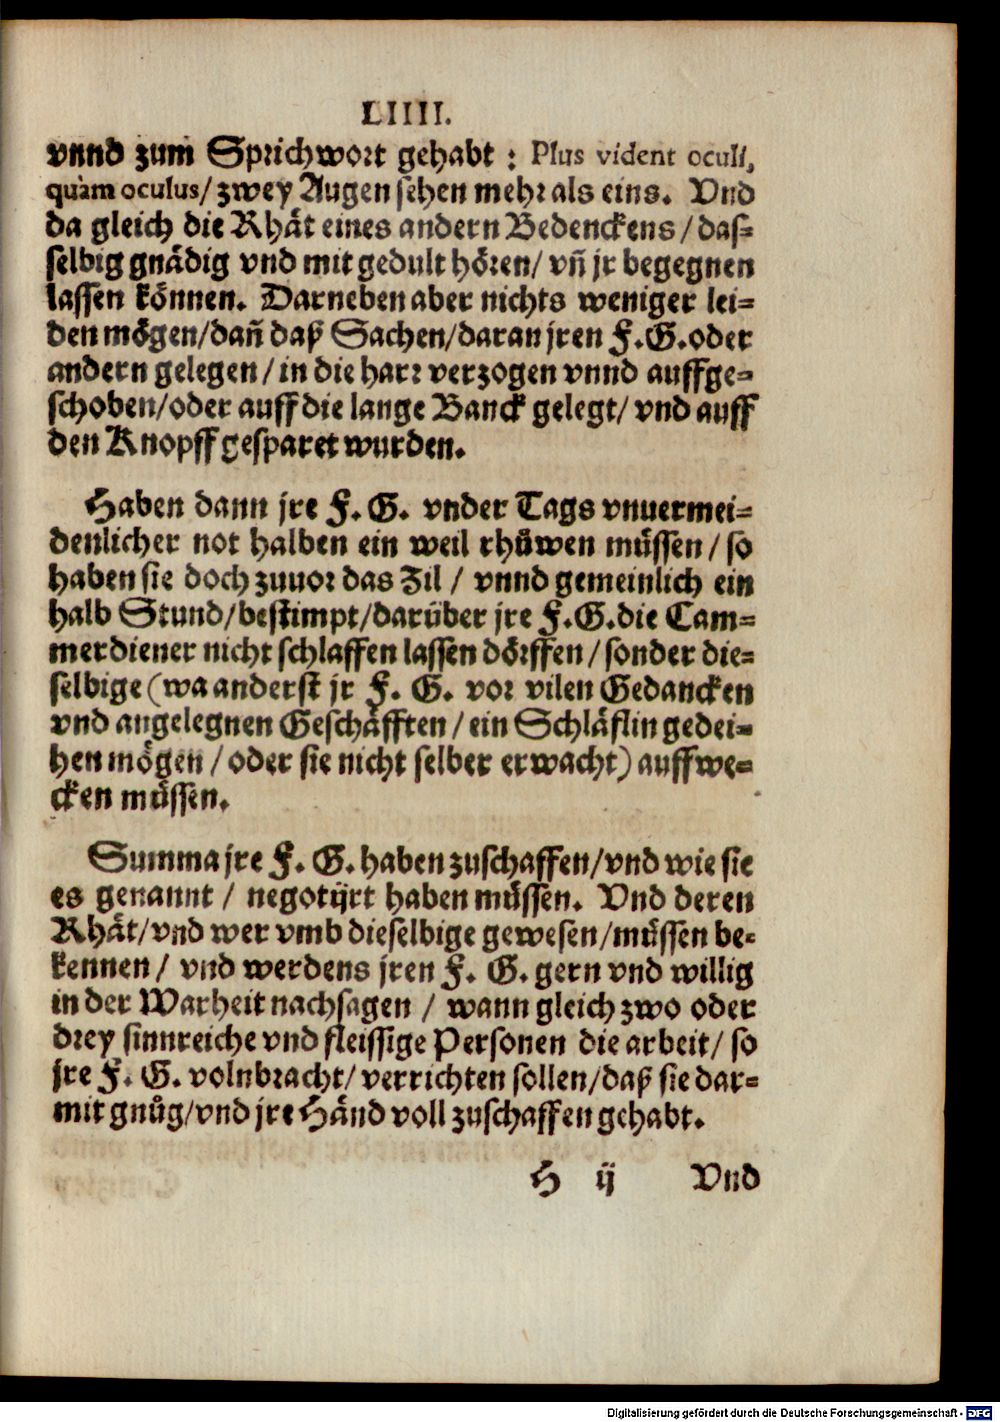 LIIII.
vnnd zum Sprichwort gehabt : Plus vident oculi,
quàm oculus/ zwey Augen sehen mehr als eins. Vnd
da gleich die Rhät eines andern Bedenckens/ das=
selbig gnädig vnd mit gedult hören/ vñ jr begegnen
lassen können. Darneben aber nichts weniger lei=
den mögen/dañ daß Sachen/daran jren F.G.oder
andern gelegen/ in die harr verzogen vnnd auffge=
schoben/oder auff die lange Banck gelegt/ vnd auff
den Knopff gesparet wurden.
Haben dann jre F. G. vnder Tags vnuermei=
denlicher not halben ein weil rhůwen můssen/ so
haben sie doch zuuor das Zil / vnnd gemeinlich ein
halb Stund/bestimpt/darüber jre F.G.die Cam=
merdiener nicht schlaffen lassen dörffen/ sonder die=
selbige (wa anderst jr F. G. vor vilen Gedancken
vnd angelegnen Geschäfften/ ein Schläflin gedei=
hen mögen / oder sie nicht selber erwacht) auffwe=
cken můssen.
Summa jre F. G. haben zuschaffen/vnd wie sie
es genannt / negotijrt haben můssen. Vnd deren
Rhät/vnd wer vmb dieselbige gewesen/můssen be=
kennen/ vnd werdens jren F. G. gern vnd willig
in der Warheit nachsagen / wann gleich zwo oder
drey sinnreiche vnd fleissige Personen die arbeit/ so
jre F. G. volnbracht/ verrichten sollen/daß sie dar=
mit gnůg/vnd jre Händ voll zuschaffen gehabt.
H ij Vnd
Digitalisierung gefördert durch die Deutsche Forschungsgemeinschaft - DFG